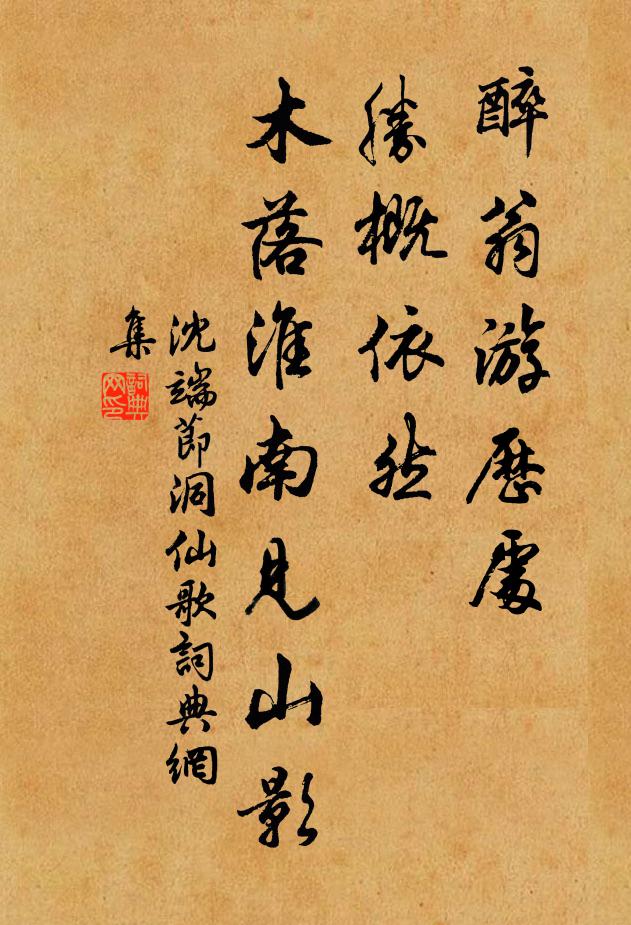 醉翁游歷處
勝概依然
木落淮南見山影
沈端節洞仙歌詞典網
集
詞典網印